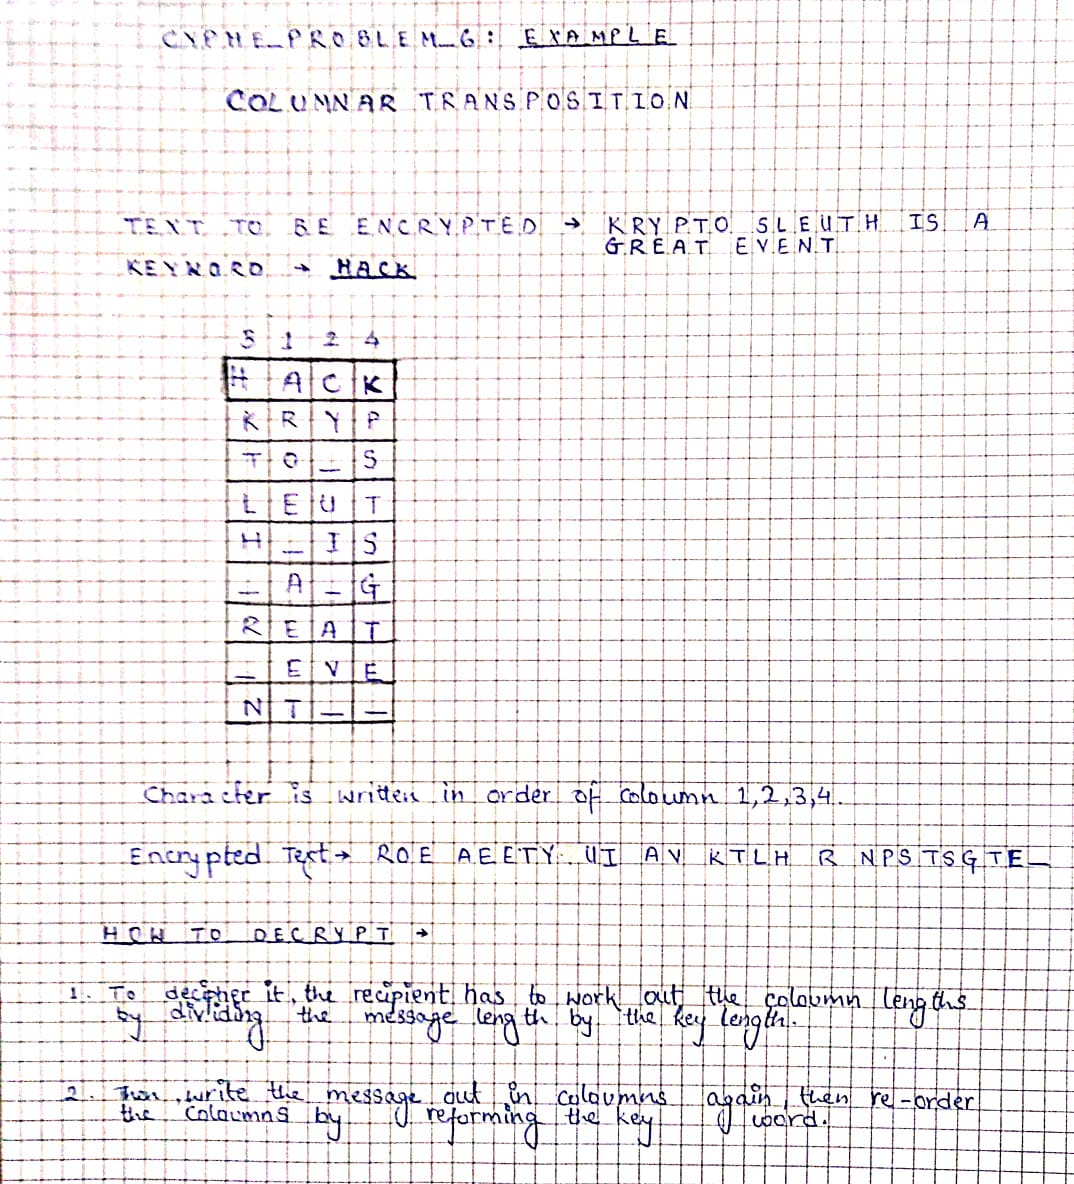 CYPHE_PROBLEM_6: EXAMPLE
COLUMNAR TRANSPOSITION
TEXT TO BE ENCRYPTED → KRYPTO SLEUTH IS A
GREAT EVENT
KEYWORD → HACK
3 1 2 4
H A C K
K R Y P
T O _ S
L E U T
H _ I S
_ A _ G
R E A T
_ E V E
N T _ _
Character is written in order of coloumn 1,2,3,4.
Encrypted Text → ROE AEETY UI AV KTLH R NPSTSGTE_
HOW TO DECRYPT →
1. To decipher it, the recipient has to work out the coloumn lengths
by dividing the message length by the key length.
2. Then, write the message out in coloumns again, then re-order
the coloumns by reforming the key word.